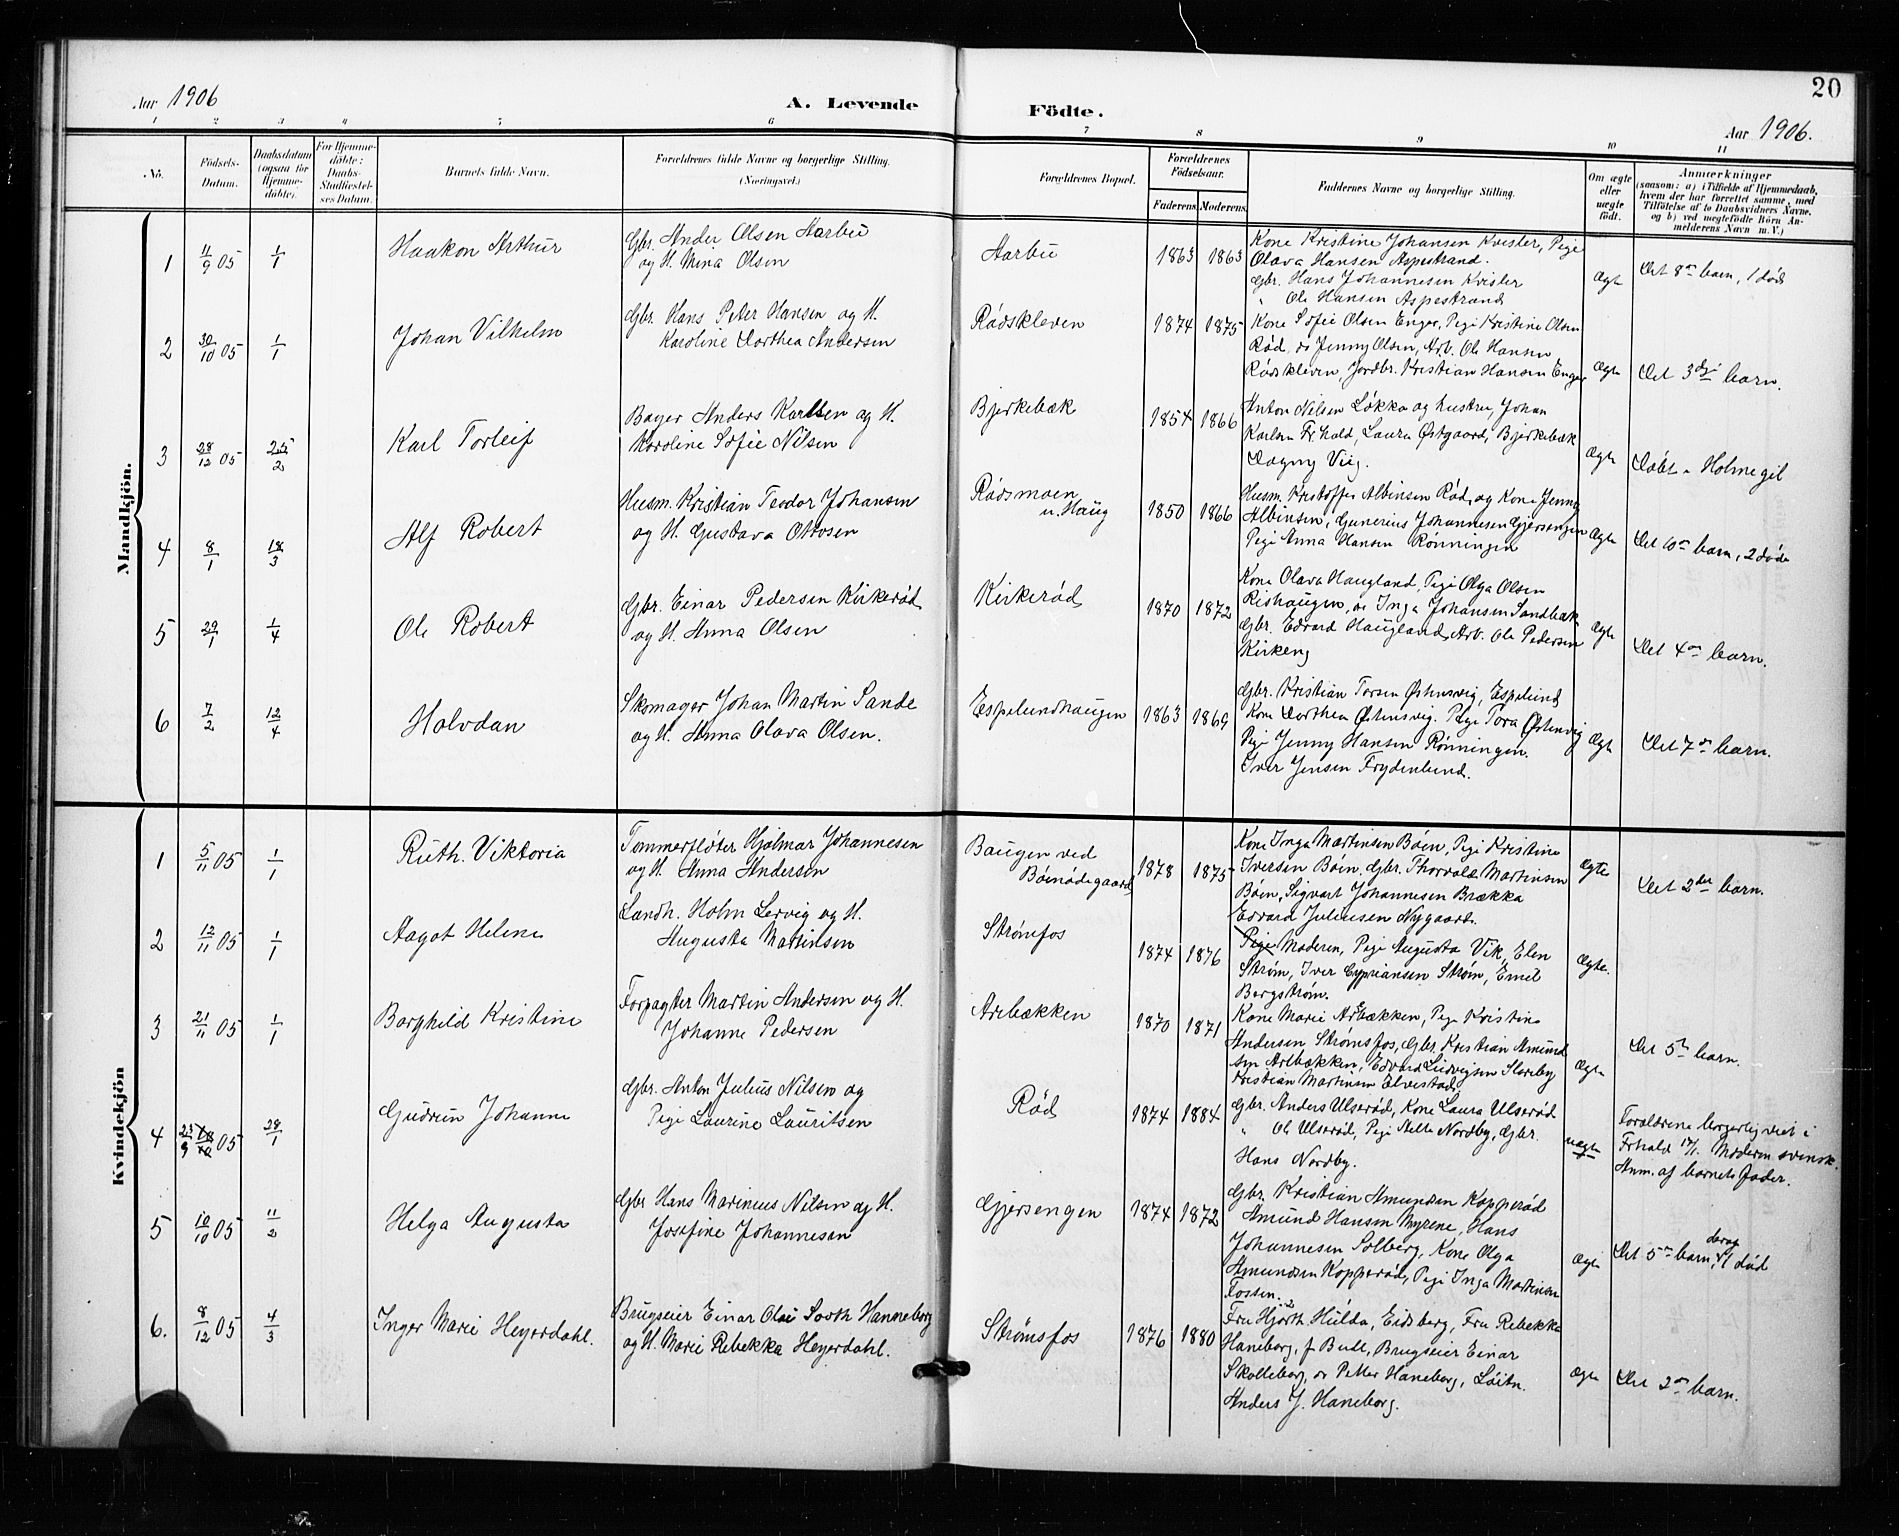 20
Aar 1906
A. Levende
Födte.
Aar 1906.
1 2 3 4 5 6 7 8 9 10 11
No.
Födsels-
Datum.
Daabsdatum
(ogsaa for
Hjemme-
döbte).
For Hjemme-
döbte:
Daabs-
Stadfæstel-
ses Datum.
Barnets fulde Navn.
Forældrenes fulde Navne og borgerlige Stilling.
(Næringsvei.)
Forældrenes Bopæl.
Forældrenes
Födselsaar.
Faderens. Moderens.
Faddernes Navne og borgerlige Stilling.
Om ægte
eller
uægte
födt.
Anmærkninger
(saasom: a) i Tilfælde af Hjemmedaab,
hvem der har forrettet samme, med
Tilföielse af to Daabsvidners Navne,
og b) ved uægtefödte Börn An-
melderens Navn m. V.)
Mandkjön.
1 11/9 05 1/1 Haakon Arthur
Gbr. Ander Olsen Aarbu
og H. Mina Olsen
Aarbu 1863 1863
Kone Kristine Johansen Kvister, Pige
Olava Hansen Aspestrand.
Gbr. Hans Johannesen Kvister
" Ole Hansen Aspestrand
Ægte
Det 8de barn, 1 död
2 30/10 05 1/1 Johan Vilhelm
Gbr. Hans Peter Hansen og H.
Karoline Dorthea Andersen
Rødskleven 1874 1875
Kone Sofie Olsen Enger, Pige Kristine Olsen
Rød, do Jenny Olsen, Arb. Ole Hansen
Rødskleven, Jordbr. Kristian Hansen Enger
Ægte
Det 3die barn.
3 28/12 05 25/2 Karl Torleif
Bager Anders Karlsen og H.
Karoline Sofie Nilsen
Bjerkebæk 1854 1866
Anton Nilsen Løkka og hustru, Johan
Karlsen Fr.hald, Laura Østgaard, Bjerkebæk
Dagny Viig.
Ægte
Döbt i Holmegil
4 8/1 18/3 Alf Robert
Husm. Kristian Teodor Johansen
og H. Gustava Ottosen
Rødsmoen
u. Haug
1850 1866
Husm. Kristoffer Albinsen Rød og Kone Jenny
Albinsen, Gunerius Johannesen Gjersengen
Pige Anna Hansen Rønningen
Ægte
Det 10de barn, 2 döde
5 29/1 1/4 Ole Robert
Gbr. Einar Pedersen Kirkerød
og H. Anna Olsen
Kirkerød 1870 1872
Kone Olava Haugland, Pige Olga Olsen
Rishaugen, do Inga Johansen Sandbæk
Gbr. Edvard Haugland, Arb. Ole Pedersen
Kirkeng
Ægte
Det 4de barn.
6 7/2 12/4 Halvdan
Skomager Johan Martin Sande
og H. Anna Olava Olsen.
Espelundhaugen 1863 1869
Gbr. Kristian Torsen Østensvig, Espelund
Kone Dorthea Østensvig. Pige Tora Østensvig
Pige Jenny Hansen Rønningen.
Iver Jensen Frydenlund.
Ægte
Det 7de barn.
Kvindekjön
1 5/11 05 1/1 Ruth Viktoria
Tømmerfløter Hjalmar Johannesen
og H. Anna Andersen
Baugen ved
Bøenødegaard
1878 1875
Kone Inga Martinsen Bøen, Pige Kristine
Iversen Bøen, Gbr. Thorvald Martinsen
Bøen, Sigvart Johannesen Brække
Edvard Juliusen Nygaard.
Ægte
Det 2det barn.
2 12/11 05 1/1 Aagot Helene
Landh. Holm Lervig og H.
Augusta Martinsen
Strømfos 1874 1876
Pige Moderen, Pige Augusta Vik, Elen
Strøm, Iver Cypriansen Strøm, Emil
Bergstrøm.
Ægte.
3 21/11 05 1/1 Borghild Kristine
Forpagter Martin Andersen og H.
Johanne Pedersen
Arebækken 1870 1871
Kone Marie Arebækken, Pige Kristine
Andersen Strømsfos, Gbr. Kristian Amund
sen Arebækken, Edvard Ludvigsen Slorebey
Kristian Martinsen Elvestad
Ægte
Det 5te barn.
4 23/9 18/10 05 28/1 Gudrun Johanne
Gbr. Anton Julius Nilsen og
Pige Laurine Lauritsen
Rød 1874 1884
Gbr. Anders Ulserød, Kone Laura Ulserød
" Ole Ulserød, Pige Alette Nordby, Gbr.
Hans Nordby.
uægte
Forældrene borgerlig viet i
Frhald 17/1. Moderen svensk.
Anm. af barnets fader.
5 10/10 05 11/2 Helga Augusta
Gbr Hans Marinius Nilsen og H.
Josefine Johannesen
Gjersengen 1874 1872
Gbr. Kristian Amundsen Kopperød
Amund Hansen Myrene, Hans
Johannesen Solberg, Kone Olga
Amundsen Kopperød, Pige Inga Martinsen
Fossen.
Ægte
Det 5te barn, deraf 1 död
6. 8/12 05 4/3 Inger Marie Heyerdahl.
Brugseier Einar Olai Sooth Hanneborg
og H. Marie Rebekka Heyerdahl.
Strømsfos 1876 1880
Fru Hjorth Hulda, Eidsberg, Fru Rebekka
Haneborg, f Bull, Brugseier Einar
Skolleborg, do Petter Haneborg, Löitn.
Anders J. Haneborg.
Ægte
Det 2det barn.